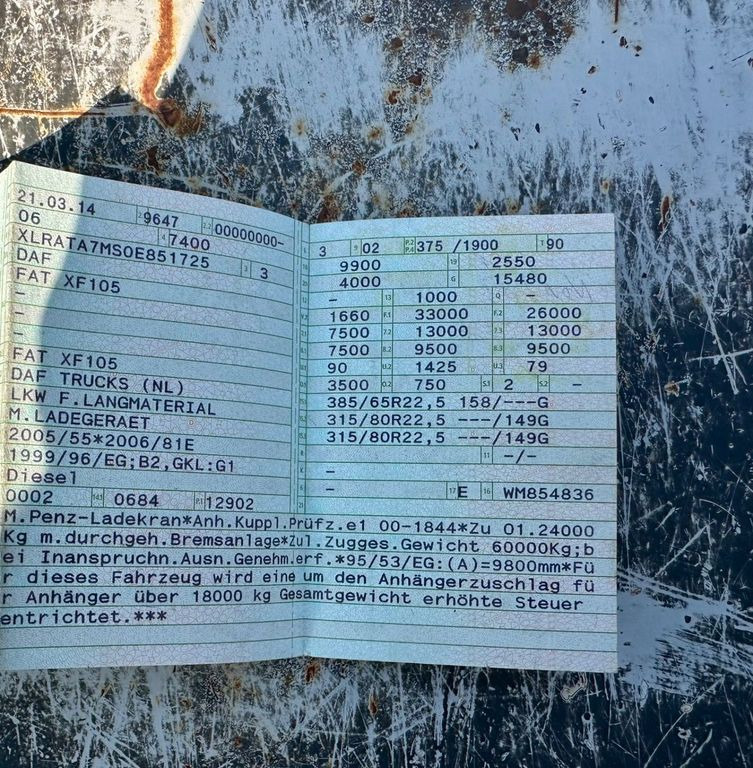 21.03.14 9647 00000000-
06 7400
XLRATA7MS0E851725
DAF 3 3
FAT XF105
-
-
-
FAT XF105
DAF TRUCKS (NL)
LKW F.LANGMATERIAL
M.LADEGERAET
2005/55*2006/81E
1999/96/EG;B2,GKL:G1
Diesel
0002 14.1 0684 P.1 12902
3 9 02 P.2 P.4 375 /1900 T 90
9900 19 2550
4000 G 15480
- 13 1000 Q -
1660 F.1 33000 F.2 26000
7500 7.2 13000 7.3 13000
7500 8.2 9500 8.3 9500
90 U.2 1425 U.3 79
3500 O.2 750 S.1 2 S.2 -
385/65R22,5 158/---G
315/80R22,5 ---/149G
315/80R22,5 ---/149G
11 -/-
-
- 17 E 16 WM854836
M.Penz-Ladekran*Anh.Kuppl.Prüfz.e1 00-1844*Zu O1.24000
Kg m.durchgeh.Bremsanlage*Zul.Zugges.Gewicht 60000Kg;b
ei Inanspruchn.Ausn.Genehm.erf.*95/53/EG:(A)=9800mm*Fü
r dieses Fahrzeug wird eine um den Anhängerzuschlag fü
r Anhänger über 18000 kg Gesamtgewicht erhöhte Steuer
entrichtet.***